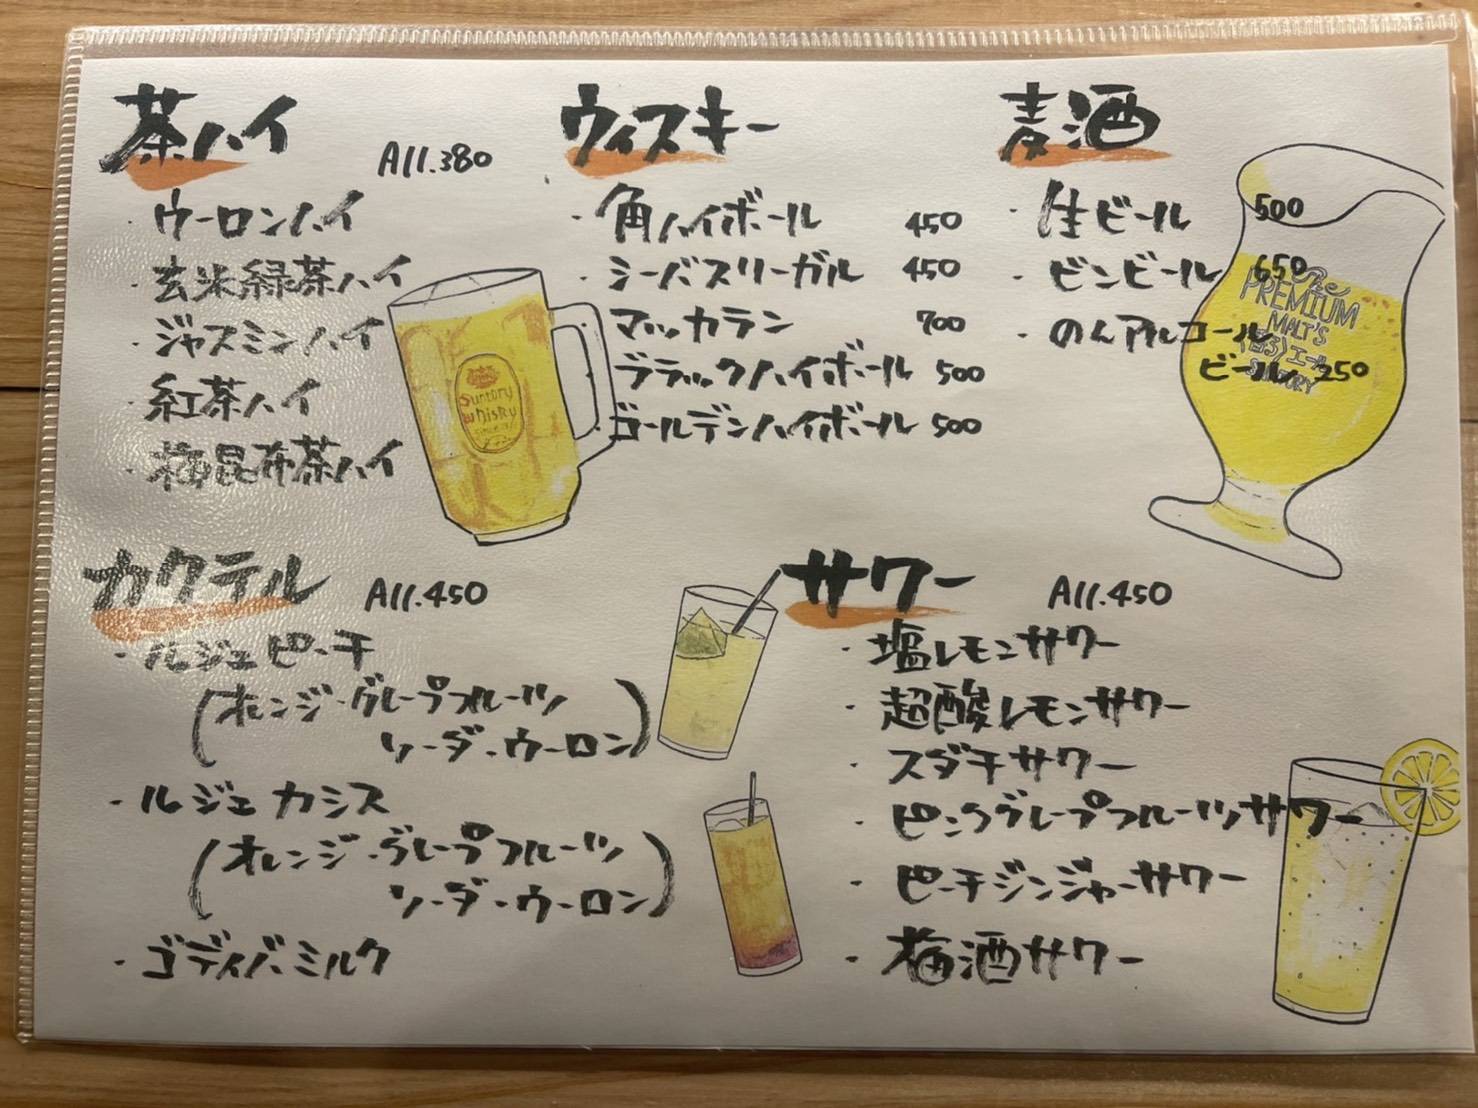 茶ハイ All.380
・ウーロンハイ
・玄米緑茶ハイ
・ジャスミンハイ
・紅茶ハイ
・梅昆布茶ハイ
ウィスキー
・角ハイボール 450
・シーバスリーガル 450
マッカラン 700
ブラックハイボール 500
ゴールデンハイボール 500
Suntory
Whisky
麦酒
・生ビール 500
・ビンビール 650
・のんアルコール
ビール 350
The
PREMIUM
MALT'S
カクテル All.450
・ルジェピーチ
(オレンジ・グレープフルーツ
ソーダ・ウーロン)
・ルジェカシス
(オレンジ・グレープフルーツ
ソーダ・ウーロン)
・ゴディバミルク
サワー All.450
・塩レモンサワー
・超酸レモンサワー
・スダチサワー
・ピンクグレープフルーツサワー
・ピーチジンジャーサワー
・梅酒サワー